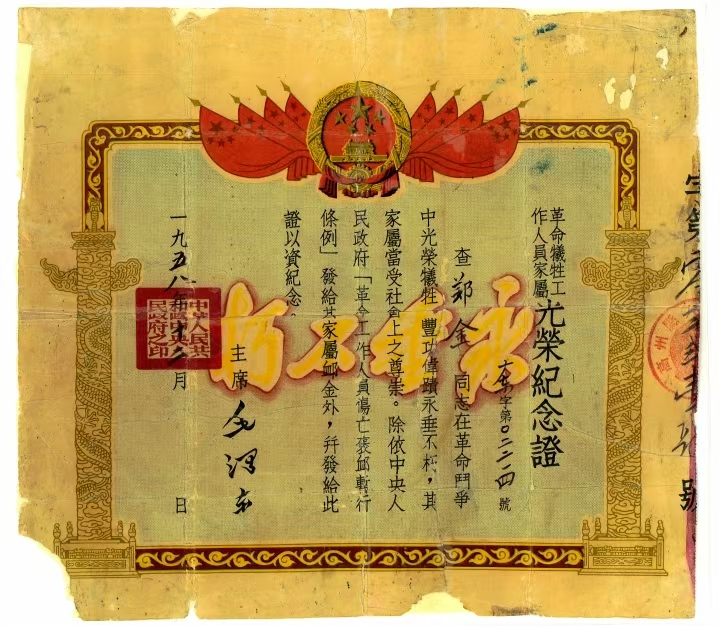 革命犧牲工
作人員家屬
光榮紀念證
字第 號
查鄭金同志在革命鬥爭
中光榮犧牲，豐功偉蹟永垂不朽，其
家屬當受社會上之尊崇。除依中央人
民政府「革命工作人員傷亡褒卹暫行
條例」發給其家屬卹金外，并發給此
證以資紀念。
主席 毛澤東
一九五八年 月 日
中華人民共
和國中央人
民政府之印
永垂不朽